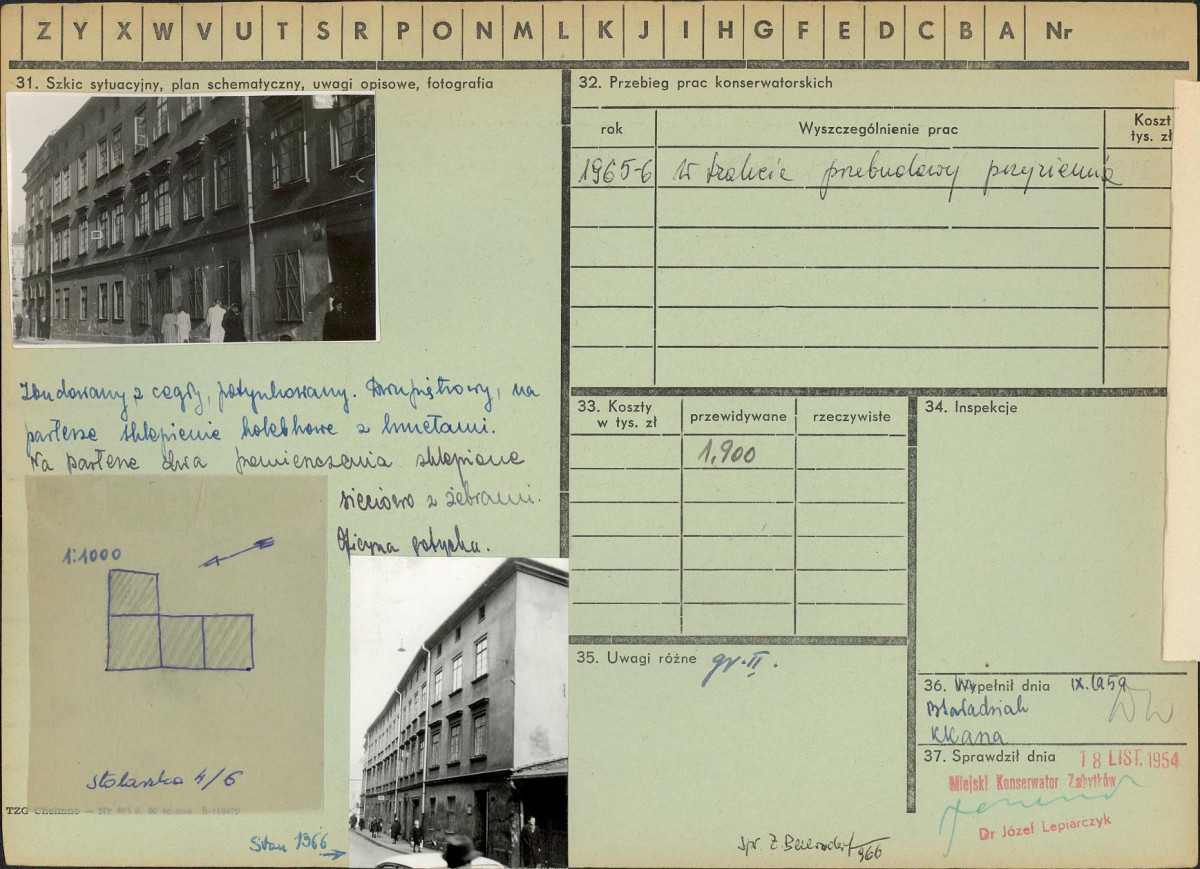 Z Y X W V U T S R P O N M L K J I H G F E D C B A Nr
31. Szkic sytuacyjny, plan schematyczny, uwagi opisowe, fotografia
Zbudowany z cegły, potynkowany. Dwupiętrowy, na
parterze sklepienie kolebkowe z lunetami.
Na parterze dwa pomieszczenia sklepione
sieciowo z żebrami.
Oficyna gotycka.
1:1000
Stolarska 4/6
TZG Chełmno
Stan 1966
32. Przebieg prac konserwatorskich
rok
Wyszczególnienie prac
Koszt
tys. zł
1965-6 w trakcie przebudowy przyziemia
33. Koszty
w tys. zł
przewidywane
rzeczywiste
1,900
34. Inspekcje
35. Uwagi różne gr. II.
36. Wypełnił dnia IX.1959
KKana
37. Sprawdził dnia 18 LIST. 1954
Miejski Konserwator Zabytków
Dr Józef Lepiarczyk
Spr. Z. Beiersdorf 966